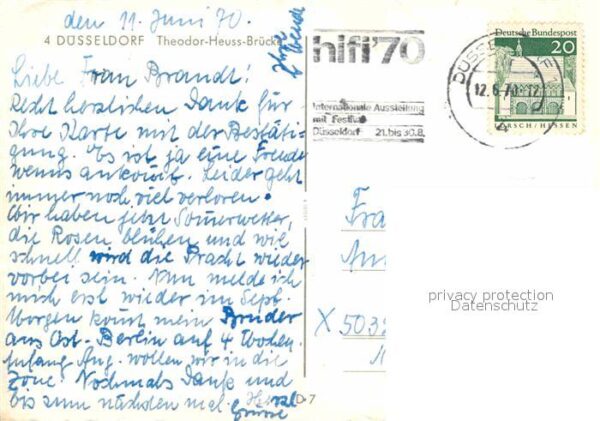 den 11. Juni 70.
4 DÜSSELDORF Theodor-Heuss-Brücke
Liebe Frau Brandt!
Recht herzlichen Dank für
Ihre Karte mit der Bestäti-
gung. Es ist ja eine Freude
wenns ankommt. Leider geht
immer noch viel verloren.
Wir haben jetzt Sommerwetter,
die Rosen blühen und wie
schnell wird die Pracht wieder
vorbei sein. Nun melde ich
mich erst wieder im Sept.
Morgen kommt mein Bruder
aus Ost-Berlin auf 4 Wochen.
Anfang Aug. wollen wir in die
Zone. Nochmals Dank und
bis zum nächsten mal. Herzl
Grüsse
Ihre
D-7
hifi'70
Internationale Ausstellung
mit Festival
Düsseldorf 21. bis 30.8.
DÜSSELDORF
12.6.70-12
Deutsche Bundespost
20
LORSCH/HESSEN
Fra
X 5032
privacy protection
Datenschutz